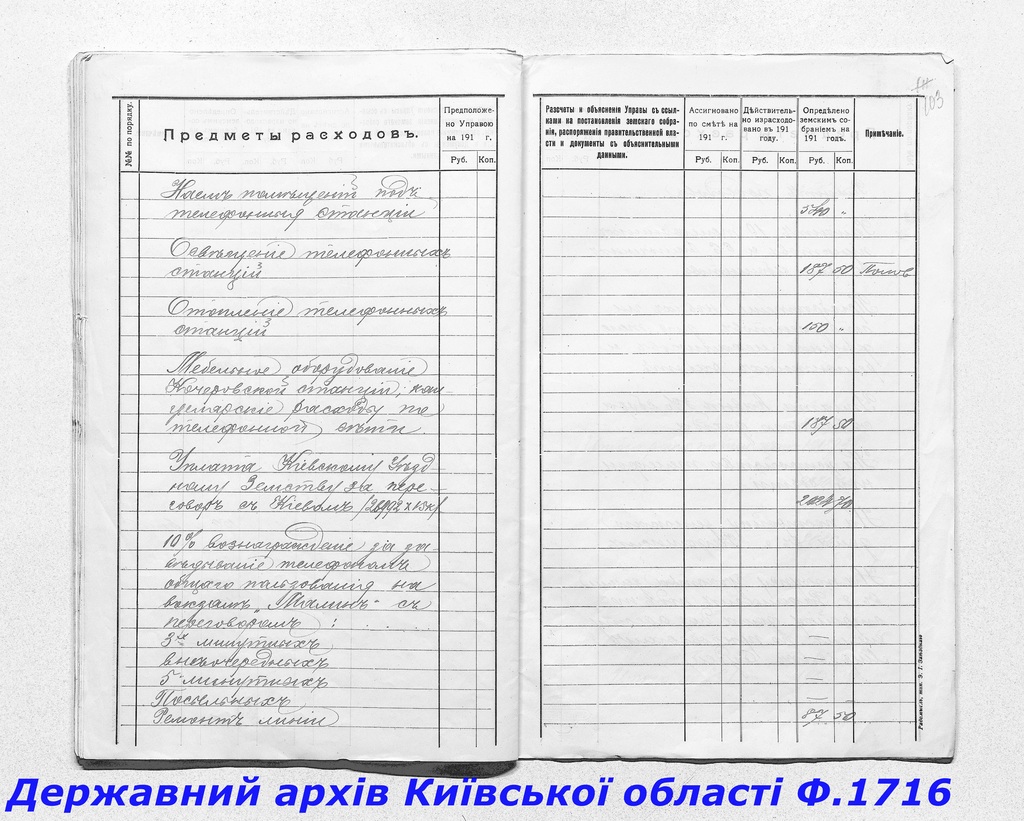 №№ по порядку.
Предметы расходовъ.
Предположе-
но Управою
на 191 г.
Руб. Коп.
Наемъ помѣщеній подъ
телефонныя станціи
Освѣщеніе телефонныхъ
станцій
Отопленіе телефонныхъ
станцій
Мебельное оборудованіе
Кочеровской станціи; кан-
целярскіе расходы по
телефонной сѣти.
Уплата Кіевскому Уѣзд-
ному Земству за пере-
говоръ съ Кіевомъ
10% вознагражденіе за за-
вѣдываніе телефономъ
общаго пользованія на
вокзалѣ „Малинъ" съ
переговоровъ :
3х минутныхъ
внѣочередныхъ
5 минутныхъ
Посыльныхъ
Ремонтъ линіи
Разсчеты и объясненія Управы съ ссыл-
ками на постановленія земскаго собра-
нія, распоряженія правительственной вла-
сти и документы съ объяснительными
данными.
Ассигновано
по смѣтѣ на
191 г.
Руб. Коп.
Дѣйствитель-
но израсходо-
вано въ 191
году.
Руб. Коп.
Опредѣлено
земскимъ со-
браніемъ на
191 годъ.
Руб. Коп.
Примѣчаніе.
103
540 „
187 50
150 „
187 50
70
—
—
—
—
87 50
Державний архів Київської області Ф.1716